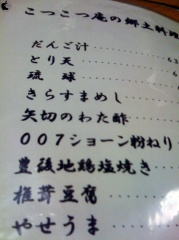 こつこつ庵の郷土料理
だんご汁
とり天
琉球
きらすまめし
矢切のわた酢
007ショーン粉ねり
豊後地鶏塩焼き
椎茸豆腐
やせうま